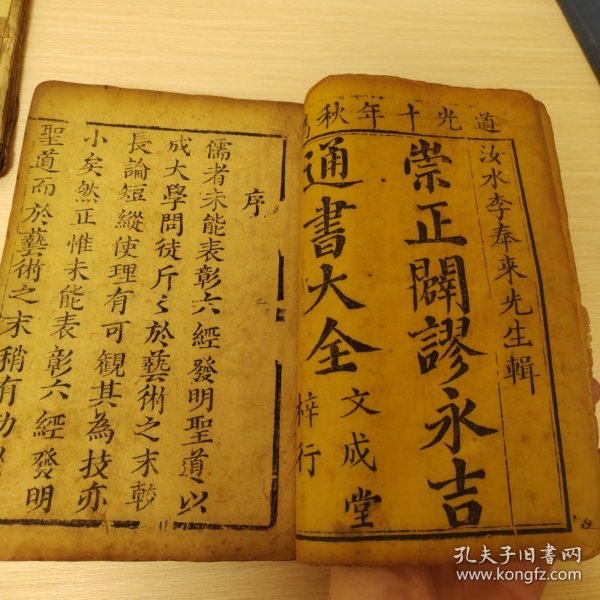 道光十年秋
汝水李奉來先生輯
崇正闢謬永吉
通書大全
文成堂
梓行
序
儒者未能表彰六經發明聖道以
成大學問徒斤〻於藝術之末
長論短縱使理有可観其為技亦
小矣然正惟未能表彰六經發明
聖道而於藝術之末稍有
孔夫子旧书网
www.kongfz.com